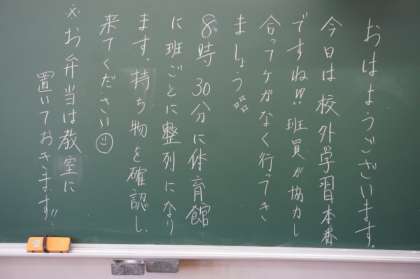 おはようございます。
今日は校外学習本番
ですね!!班員が協力し
合ってケガなく行ってき
ましょう
8時30分に体育館
に班ごとに整列になり
ます。持ち物を確認し、
来てください☺
※お弁当は教室に
置いておきます!!